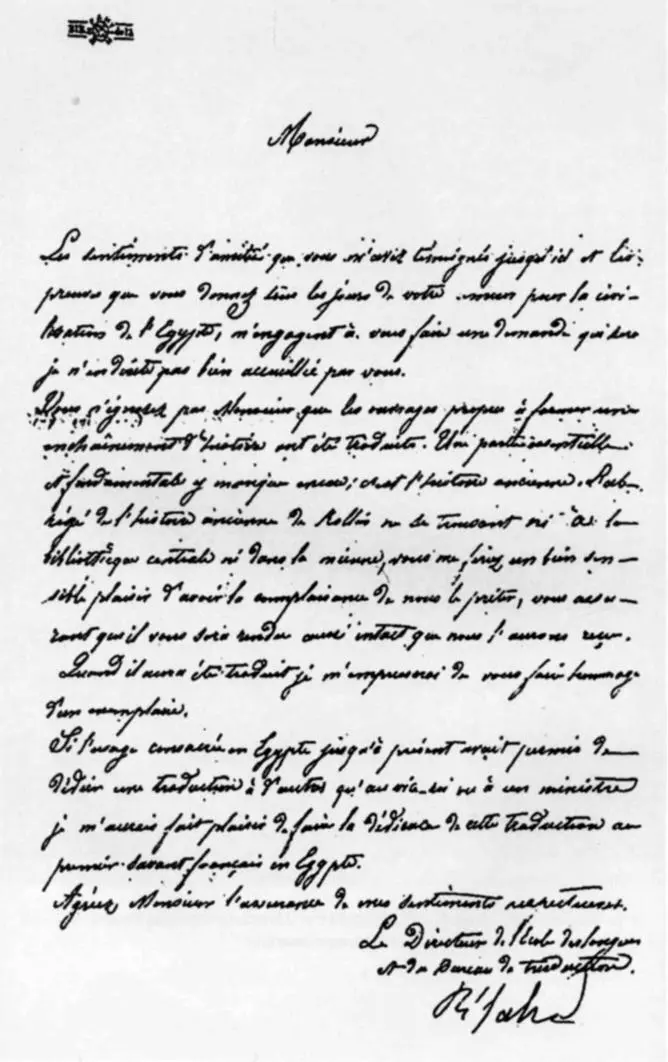 Monsieur
Les sentiments d'amitié que vous m'avez témoignés jusqu'ici et les
preuves que vous donnez tous les jours de votre amour pour la civi-
lisation de l'Egypte, m'engagent à vous faire une demande qui sera
je n'en doute pas bien accueillie par vous.
Vous n'ignorez pas Monsieur que les ouvrages propres à former un
enchaînement d'histoire ont été traduits. Une partie essentielle
et fondamentale y manque encore; c'est l'histoire ancienne. L'ab-
régé de l'histoire ancienne de Rollin ne se trouvant ni à la
bibliothèque centrale ni dans la mienne, vous me feriez un bien sen-
sible plaisir d'avoir la complaisance de nous le prêter, vous assu-
rant qu'il vous sera rendu aussi intact que nous l'aurons reçu.
Quand il aura été traduit je m'empresserai de vous faire hommage
d'un exemplaire.
Si l'usage consacré en Egypte jusqu'à présent avait permis de
dédier une traduction à d'autres qu'au vice-roi ou à un ministre
je m'aurais fait plaisir de faire la dédicace de cette traduction au
premier savant français en Egypte.
Agréez Monsieur l'assurance de mes sentiments respectueux.
Le Directeur de l'Ecole des langues
et du Bureau de traduction.
Réfaha